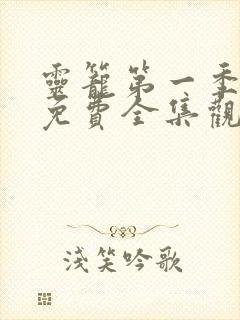 靈籠第一季
免費全集觀
淺笑吟歌